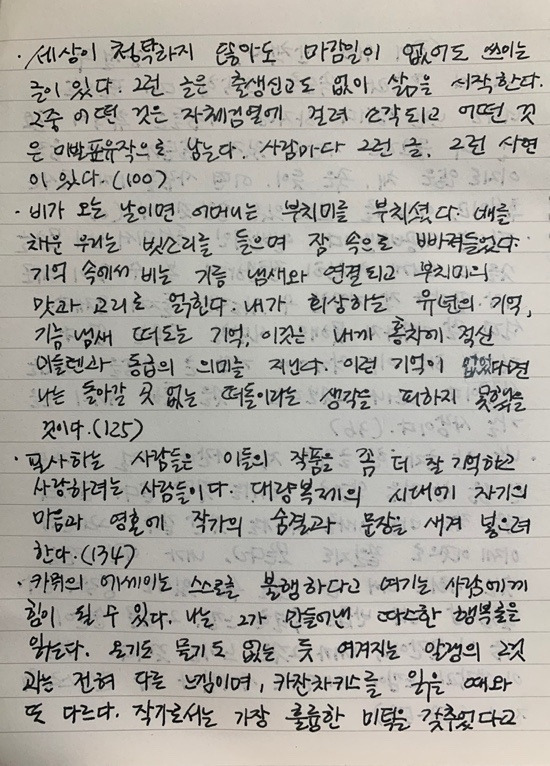 · 세상이 청탁하지 않아도 마감일이 없어도 쓰이는
글이 있다. 그런 글은 출생신고도 없이 삶을 시작한다.
그중 어떤 것은 자체검열에 걸려 소각되고 어떤 것
은 미발표유작으로 남는다. 사람마다 그런 글, 그런 사연
이 있다. (100)
· 비가 오는 날이면 어머니는 부치미를 부치셨다. 배를
채운 우리는 빗소리를 들으며 잠 속으로 빠져들었다.
기억 속에서 비는 기름 냄새와 연결되고 부치미의
맛과 고리로 얽힌다. 내가 회상하는 유년의 기억,
기름 냄새 떠도는 기억, 이것은 내게 홍차에 적신
마들렌과 동급의 의미를 지닌다. 이런 기억이 없었다면
나는 돌아갈 곳 없는 떠돌이라는 생각을 피하지 못했을
것이다. (125)
· 필사하는 사람들은 이들의 작품을 좀 더 잘 기억하고
사랑하려는 사람들이다. 대량복제의 시대에 자기의
마음과 영혼에 작가의 숨결과 문장을 새겨 넣으려
한다. (134)
· 카뮈의 에세이는 스스로를 불행하다고 여기는 사람에게
힘이 될 수 있다. 나는 그가 만들어낸 따스한 행복론을
읽는다. 온기도 물기도 없는 듯 여겨지는 알랭의 그것
과는 전혀 다른 느낌이며, 카잔차키스를 읽을 때와
또 다르다. 작가로서는 가장 훌륭한 미덕을 갖추었다고